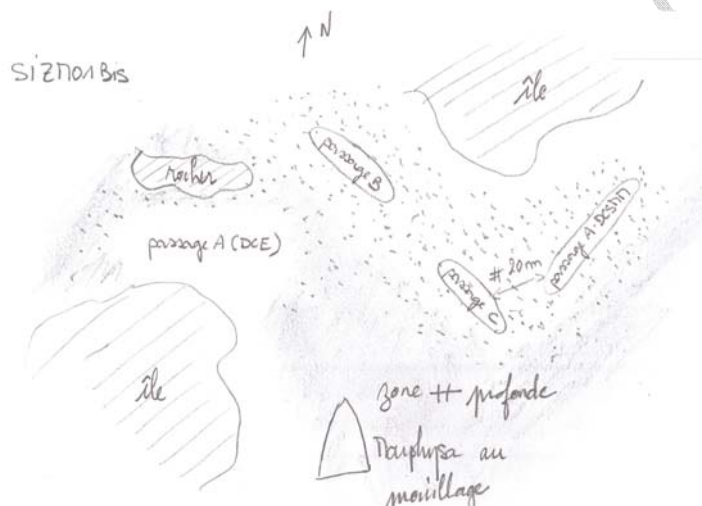 N
SIZM01Bis
île
rocher
passage B
passage A (DCE)
passage A-DCSMM
# 20 m
passage C
île
zone ++ profonde
Mouphysa au
mouillage